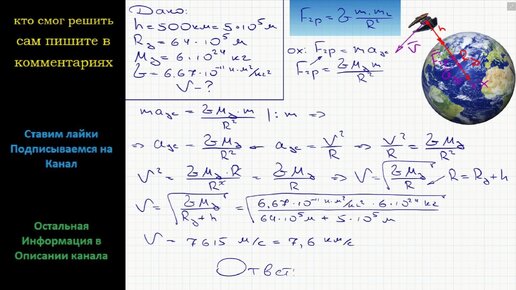 кто смог решить
сам пишите в
комментариях
Ставим лайки
Подписываемся на
Канал
Остальная
Информация в
Описании канала
Дано:
h = 500км = 5·10⁵ м
Rз = 64·10⁵ м
Mз = 6·10²⁴ кг
G = 6,67·10⁻¹¹ н·м²/кг²
V - ?
Fгр = G m₁m₂/R²
ox: Fгр = maцс
Fгр = GMзm/R²
maцс = GMз·m/R² |:m ⇒
⇒ aцс = GMз/R² ← aцс = V²/R ⇒ V²/R = GMз/R²
V² = GMз·R/R² = GMз/R ⇒ V = √(GMз/R) R = Rз + h
V = √(GMз/(Rз+h)) = √((6,67·10⁻¹¹ н·м²/кг² · 6·10²⁴ кг)/(64·10⁵ м + 5·10⁵ м))
V = 7615 м/с = 7,6 км/с
Ответ: